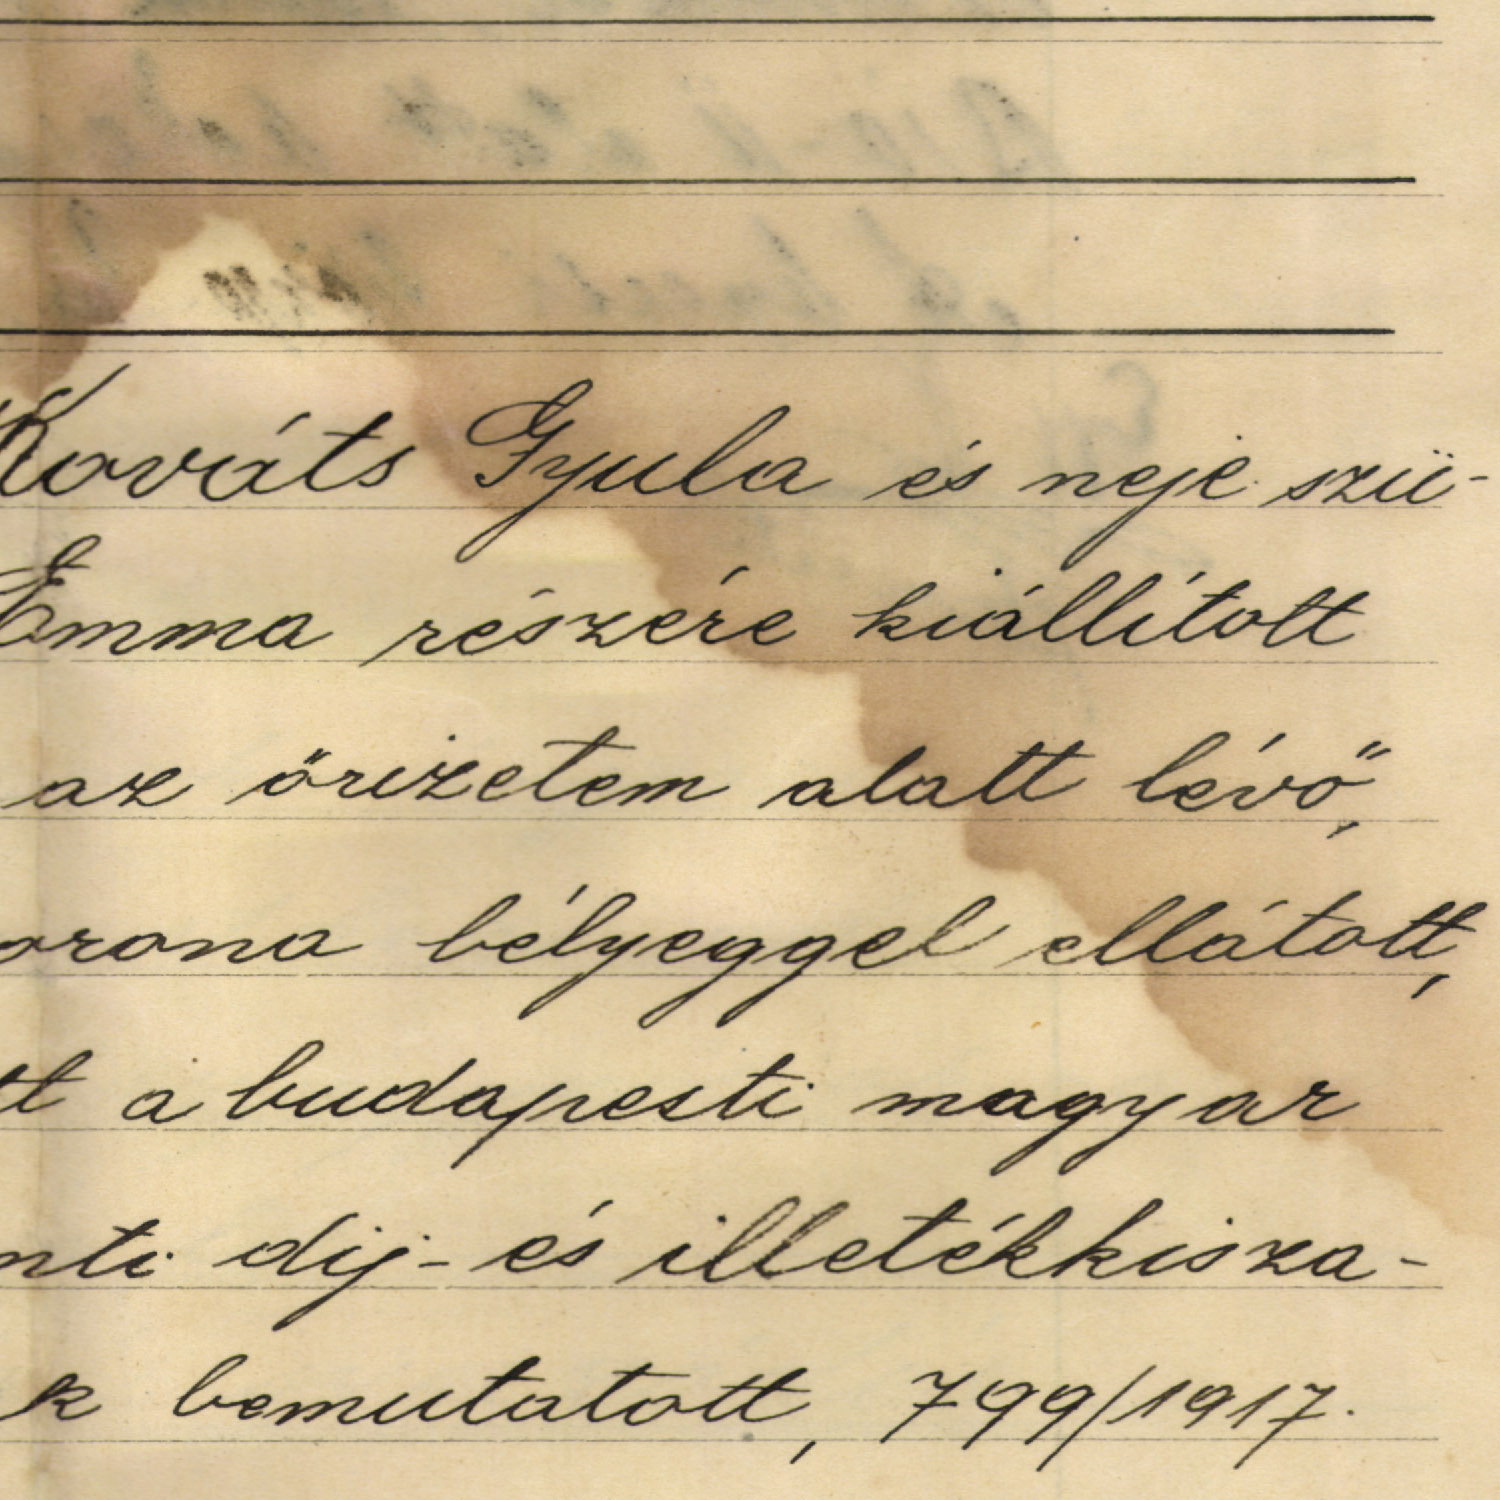 Kováts Gyula és neje szü-
Emma részére kiállított
az őrizetem alatt lévő,
orona bélyeggel ellátott,
tt a budapesti magyar
nti dij- és illetékkisza-
k bemutatott, 799/1917.